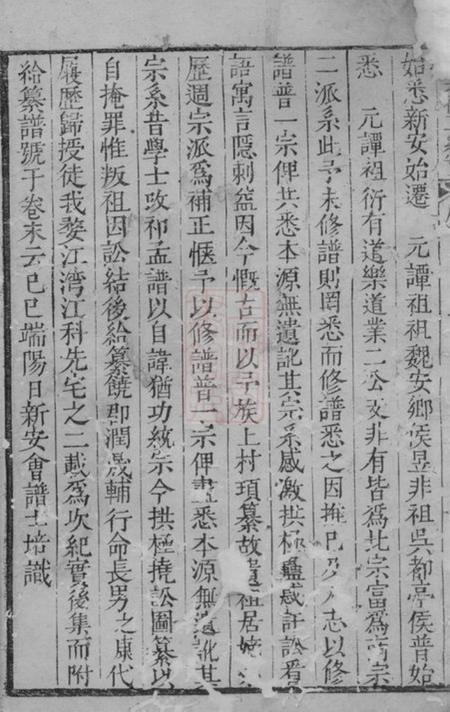 始悉新安始遷 元譚祖祖魏安鄉侯昱非祖吳都亭侯普始
悉 元譚祖衍有道樂道業二公支非有皆爲北宗富爲南宗
二派系此予未修譜則罔悉而修譜悉之因擴已及人志以修
譜普一宗俾共悉本源無遺訛其宗系感激拱極蠱惑訐訟看
語寓言隱刺益因今慨古而以予族上村項纂故遺祖居
歷週宗派爲補正愜予以修譜普一宗俾盡悉本源無遺訛其
宗系昔學士改祁孟譜以自諱猶功統宗今拱極撓訟圖纂以
自掩罪惟叛祖因訟結後給纂饒郡潤晟輔行命長男之康代
履歷歸授徒我婺江湾江科先宅之二載爲次紀實後集而附
給纂譜號于卷末云已巳端陽日新安會譜士培識